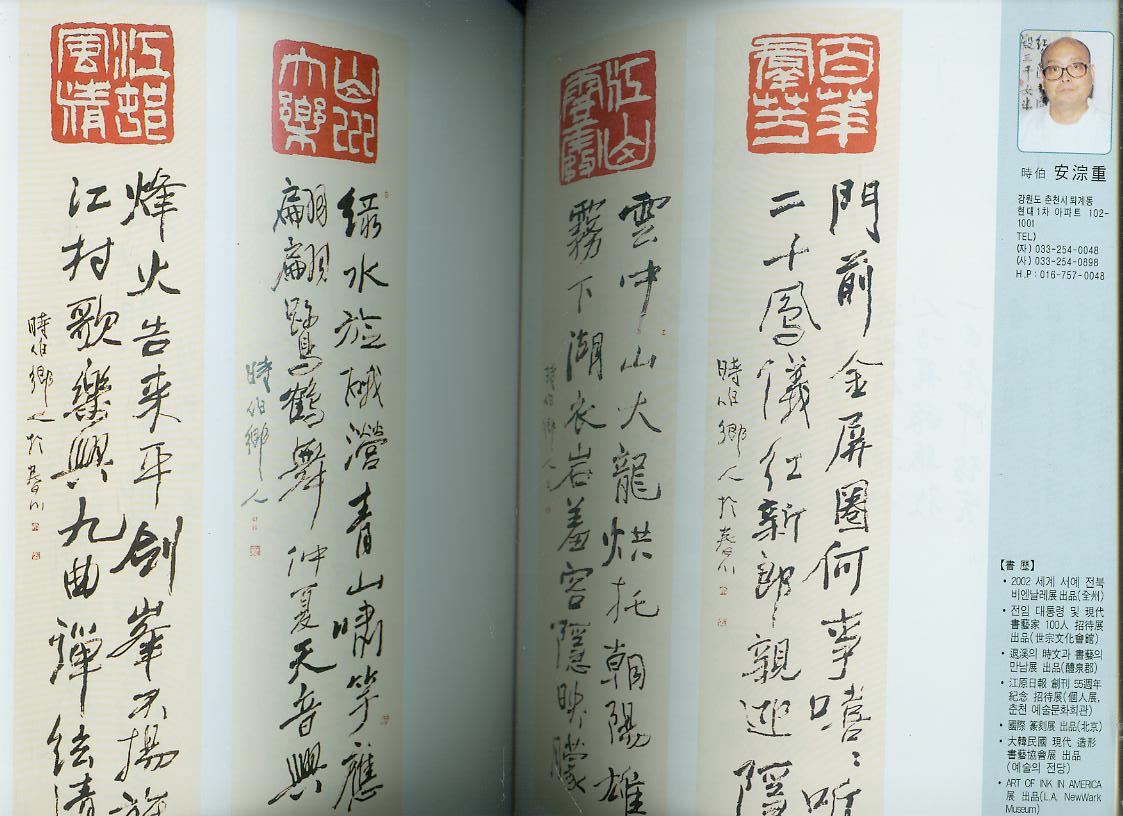 百華
羣芳
門前金屏圈何事嘻〻听
二十鳳儀红新郎親迎隱
時伯鄉人於春川
江山
雲霞
雲中山火龍烘托朝陽雄
霧下湖衣岩羞容隱映朦
時伯鄉人
山
大樂
绿水旋 瀅青山嘯竽應
翩翩鷺鶴舞仲夏天音興
時伯鄉人
江邨
風情
烽火告来平剑峯不揚
江村歌樂興九曲彈弦清
時伯鄉人於春川
時伯 安淙重
강원도 춘천시 퇴계동
현대1차 아파트 102-
1001
TEL)
(자) 033-254-0048
(사) 033-254-0898
H.P : 016-757-0048
【書 歷】
• 2002 세계 서예 전북
비엔날레展 出品(全州)
• 전임 대통령 및 現代
書藝家 100人 招待展
出品(世宗文化會館)
• 退溪의 時文과 書藝의
만남展 出品(醴泉郡)
• 江原日報 創刊 55週年
紀念 招待展(個人展,
춘천 예술문화회관)
• 國際 篆刻展 出品(北京)
• 大韓民國 現代 造形
書藝協會展 出品
(예술의 전당)
• ART OF INK IN AMERICA
展 出品(L.A, NewWark
Museum)